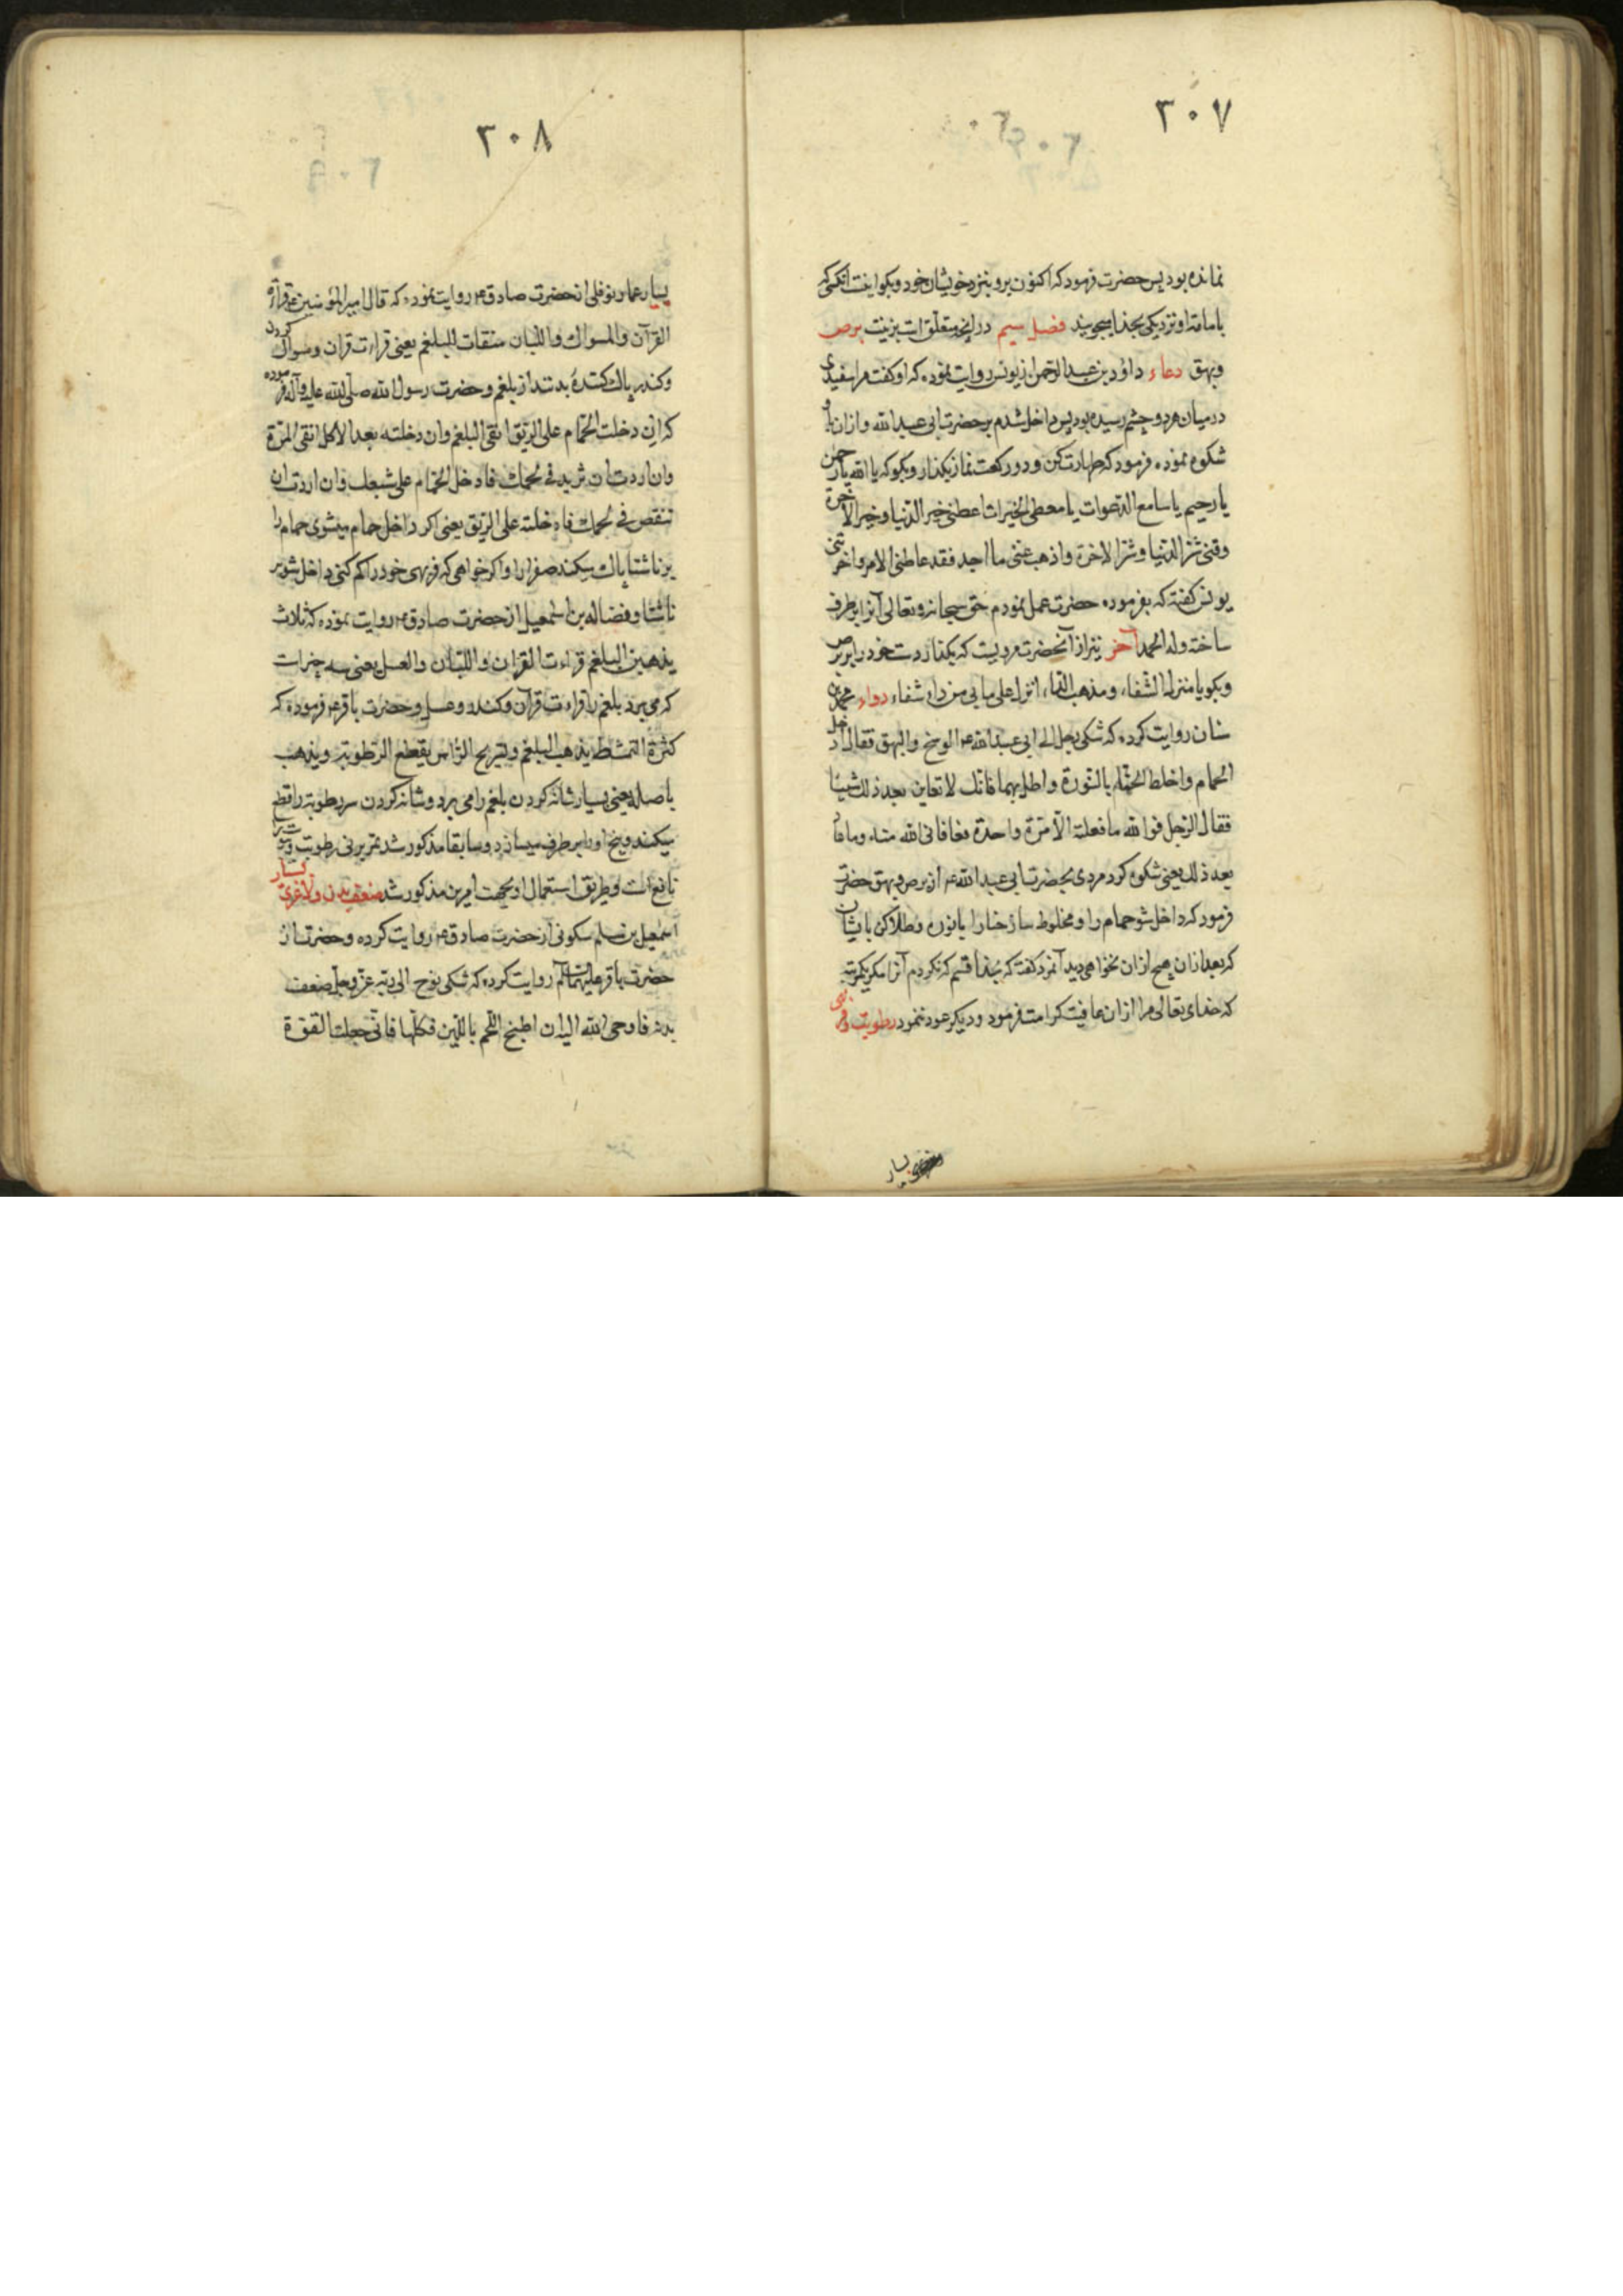 ٣٠٧
نمانده بود پس حضرت فرمود که اکنون برو بنزد خویشان خود و بگو اینست انکسی که
بامامة او نزدیکی بخدا میجویند فصل سیم در انچه متعلق است بزینت برص
وبهق دعاء داود بن عبدالرحمن از یونس روایت نموده که او گفت مرا سفیدی
درمیان هردو چشم رسیده بود پس داخل شدم بر حضرت ابی عبدالله و ازان باو
شکوه نموده فرمود که طهارت کن و دو رکعت نماز بگذار و بگو که یا الله یا رحمن
یا رحیم یا سامع الدعوات یا معطی الخیرات اعطنی خیر الدنیا و خیر الاخرة
وقنی شر الدنیا و شر الاخرة واذهب عنی ما اجد فقد غاظنی الامر واحزننی
یونس گفته که بفرموده حضرت عمل نمودم حق سبحانه وتعالی آنرا برطرف
ساخته وله الحمد آخر نیز از آنحضرت مرویست که بگذار دست خود را بر برص
وبگو یا منزل الشفاء ومذهب الداء انزل علی ما بی من داء شفاء دواء محمد بن
سنان روایت کرده که شکی رجل الی ابی عبدالله ع الوضح والبهق فقال ادخل
الحمام واخلط الحناء بالنورة واطل بهما فانک لا تعاین بعد ذلک شیئا
فقال الرجل فوالله ما فعلته الا مرة واحدة فعافانی الله منه وما عاد
بعد ذلک یعنی شکوه کرد مردی بحضرت ابی عبدالله ع از برص و بهق حضرت
فرمود که داخل شو حمام را و مخلوط ساز حنا را با نوره و طلا کن با یشان
که بعد ازان هیچ ازان نخواهی دید آنمرد گفت که بخدا قسم که نکردم آنرا مگر یکمرتبه
که خدای تعالی مرا ازان عافیت کرامت فرمود و دیگر عود ننمود رطوبت و فربهی
بسیار
٣٠٨
بسیار عمار نوفلی از حضرت صادق ع روایت نموده که قال امیرالمؤمنین ع قراءة
القرآن والمسواک واللبان منقات للبلغم یعنی قراءت قران و مسواک کردن
وکندر پاک کننده بدنند از بلغم و حضرت رسول الله صلی الله علیه وآله فرموده
که ان دخلت الحمام علی الریق انقی البلغم وان دخلته بعد الاکل انقی المرة
وان اردت ان تزید فی لحمک فادخل الحمام علی شبعک وان اردت ان
تنقص فی لحمک فادخلته علی الریق یعنی اکر داخل حمام میشوی حمام را
بر ناشتا پاک میکند صفرا را واکر خواهی که فربهی خود را کم کنی داخل شو بر
ناشتا وفضاله بن اسمعیل از حضرت صادق ع روایت نموده که ثلاث
یذهبن البلغم قراءت القران واللبان والعسل یعنی سه چیز است
که می برد بلغم را قراءت قرآن وکندر وعسل وحضرت باقر ع فرموده که
کثرة التمشط یذهب البلغم وتسریح الراس یقطع الرطوبة ویذهب
باصله یعنی بسیار شانه کردن بلغم را می برد و شانه کردن سر رطوبة را قطع
میکند و بیخ او را بر طرف میسازد و سابقا مذکور شد تمر برنی رطوبت را
نافع است و طریق استعمال او بجهت این مذکور شد ضعف بدن ولاغری بسیار
اسمعیل بن مسلم سکونی از حضرت صادق ع روایت کرده و حضرت از
حضرت باقر علیهما السلم روایت کرده که شکی نوح الی ربه عز وجل ضعف
بدنه فاوحی الله الیه ان اطبخ اللحم باللبن فکلها فانی جعلت القوة